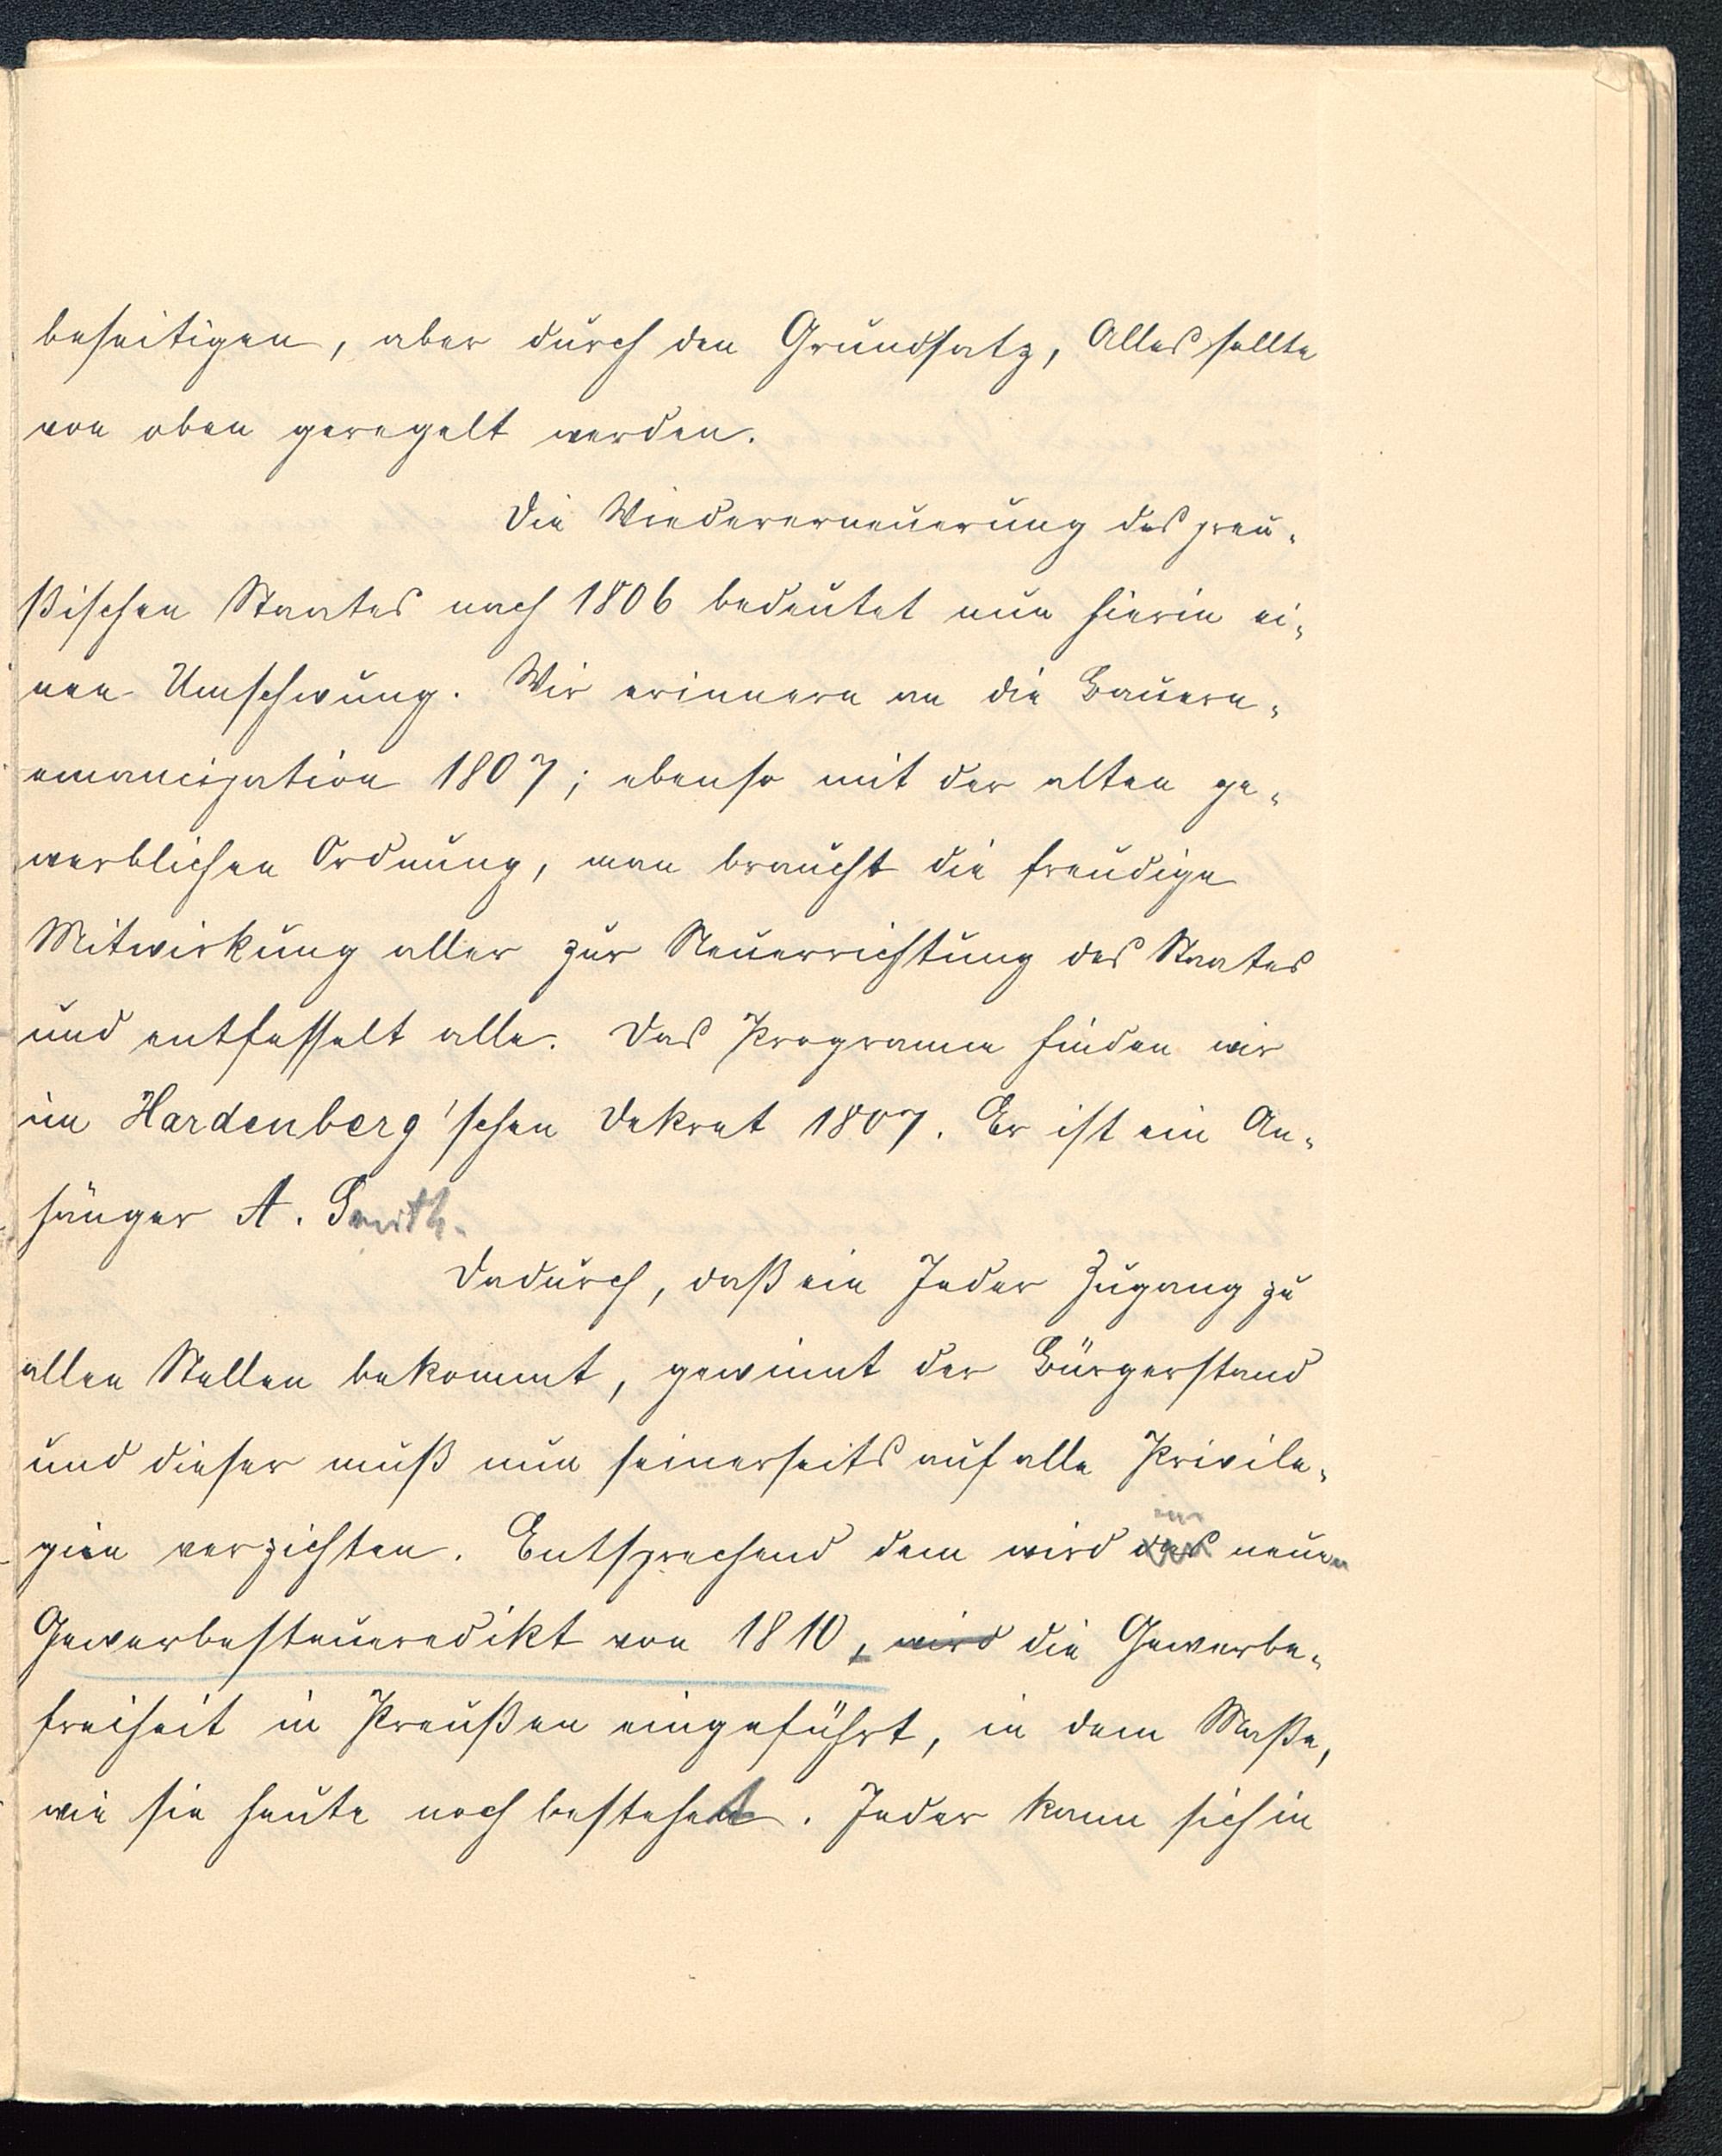 beseitigen, aber durch den Grundsatz, Alles sollte
von oben geregelt werden.
Die Wiedererneuerung des preu-
ßischen Staates nach 1806 bedeutet nun hierin ei-
nen Umschwung. Wir erinnern an die Bauern-
emancipation 1807; ebenso mit der alten ge-
werblichen Ordnung, man braucht die freudige
Mitwirkung aller zur Neuerrichtung des Staates
und entfesselt alle. Das Programm finden wir
im Hardenberg'schen Dekret 1807. Er ist ein An-
hänger A. Smith.
Dadurch, daß ein Jeder Zugang zu
allen Stellen bekommt, gewinnt der Bürgerstand
und dieser muß nun seinerseits auf alle Privile-
gien verzichten. Entsprechend dem wird das im neuen
Gewerbesteueredikt von 1810, wird die Gewerbe-
freiheit in Preußen eingeführt, in dem Maße,
wie sie heute noch besteht. Jeder kann sich in